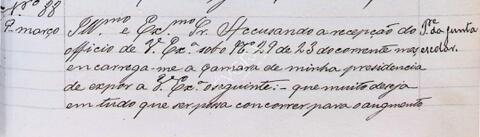 N.º 88
9 março Ill.mo e Ex.mo Sr. Accusando a recepção do Pe da junta
officio de V. Ex.ª sob o N.º 29 de 23 do corrente mez escolar.
encarrega-me a Camara de minha presidencia
de expor a V. Ex.ª o seguinte: - que muito deseja
em tudo que ser possa concorrer para o augmento